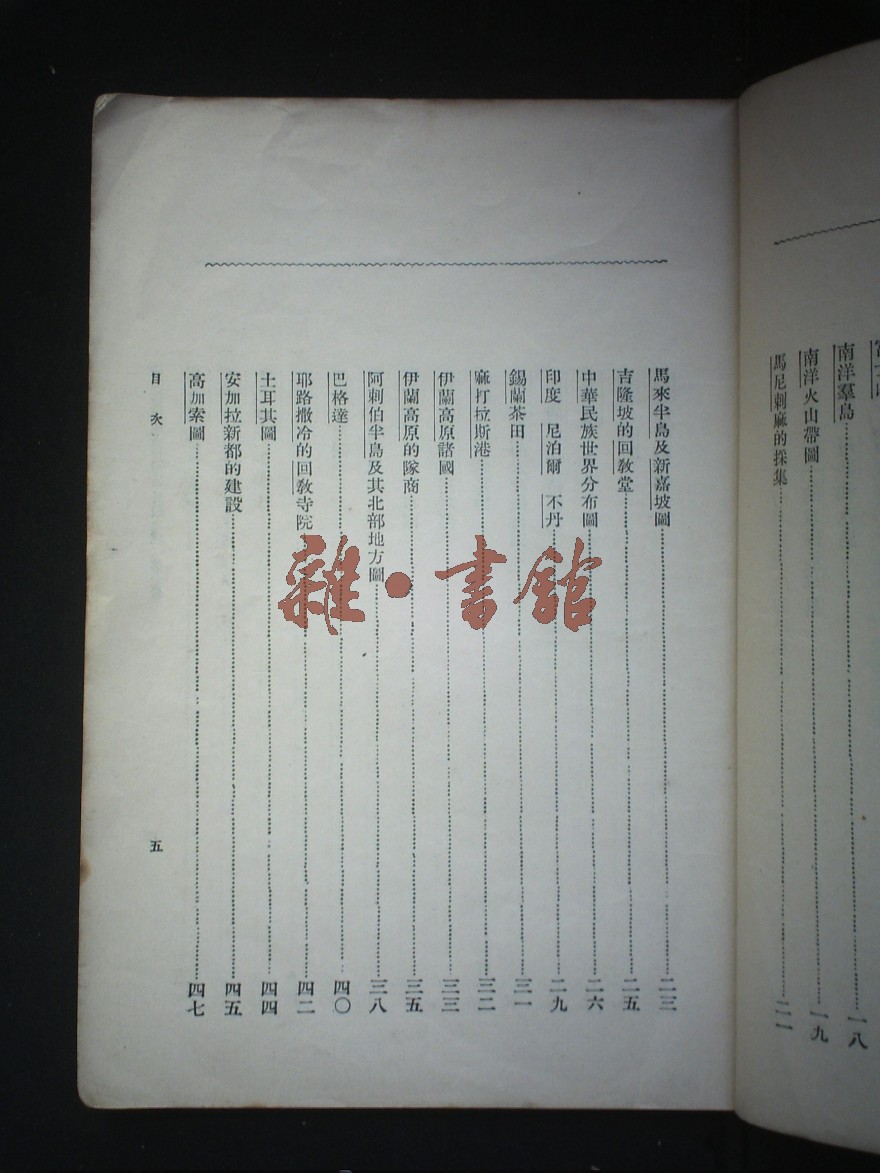 南洋羣島 一八
南洋火山帶圖 一九
馬尼剌麻的採集 二一
馬來半島及新嘉坡圖 二三
吉隆坡的回敎堂 二五
中華民族世界分布圖 二六
印度 尼泊爾 不丹 二九
錫蘭茶田 三一
麻打拉斯港 三二
伊蘭高原諸國 三三
伊蘭高原的隊商 三五
阿剌伯半島及其北部地方圖 三八
巴格達 四〇
耶路撒冷的回敎寺院 四二
土耳其圖 四四
安加拉新都的建設 四五
高加索圖 四七
目次 五
雜·書館